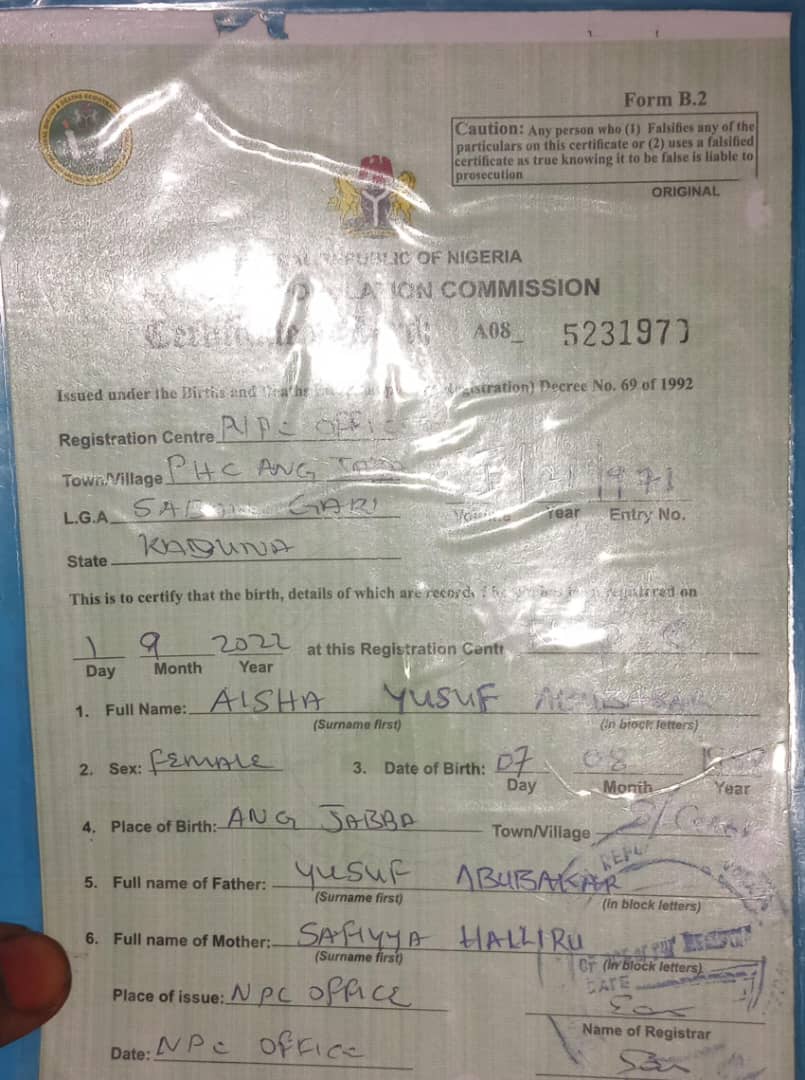 Form B.2
Caution: Any person who (1) Falsifies any of the
particulars on this certificate or (2) uses a falsified
certificate as true knowing it to be false is liable to
prosecution
ORIGINAL
REPUBLIC OF NIGERIA
COMMISSION
A08_ 523197
Issued under the Births and Deaths Decree No. 69 of 1992
Registration Centre NPC OFFICE
Town/Village PHC ANG
L.G.A GARI
Year Entry No.
State KADUNA
This is to certify that the birth, details of which are on
1 9 2022 at this Registration
Day Month Year
1. Full Name: AISHA YUSUF
(Surname first) (in block letters)
2. Sex: FEMALE 3. Date of Birth: 07 08
Day Month Year
4. Place of Birth: ANG JABBA Town/Village
5. Full name of Father: YUSUF ABUBAKAR
(Surname first) (in block letters)
6. Full name of Mother: SAFIYYA HALLIRU
(Surname first) (in block letters)
DATE
Place of issue: NPC OFFICE
Name of Registrar
Date: NPC OFFICE